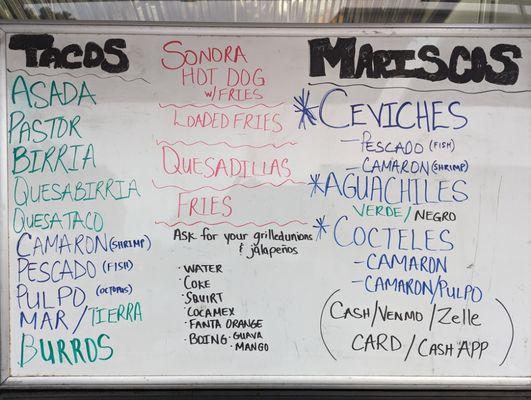 TACOS
ASADA
PASTOR
BIRRIA
QUESABIRRIA
QUESATACO
CAMARON (SHRIMP)
PESCADO (FISH)
PULPO (OCTOPUS)
MAR/TIERRA
BURROS
SONORA
HOT DOG
W/FRIES
LOADED FRIES
QUESADILLAS
FRIES
Ask for your grilled unions
& jalapeños
· WATER
· COKE
· SQUIRT
· COCAMEX
· FANTA ORANGE
· BOING · GUAVA
· MANGO
MARISCOS
* CEVICHES
- PESCADO (FISH)
- CAMARON (SHRIMP)
* AGUACHILES
VERDE/NEGRO
* COCTELES
- CAMARON
- CAMARON/PULPO
(CASH/VENMO/Zelle
CARD/CASH APP)